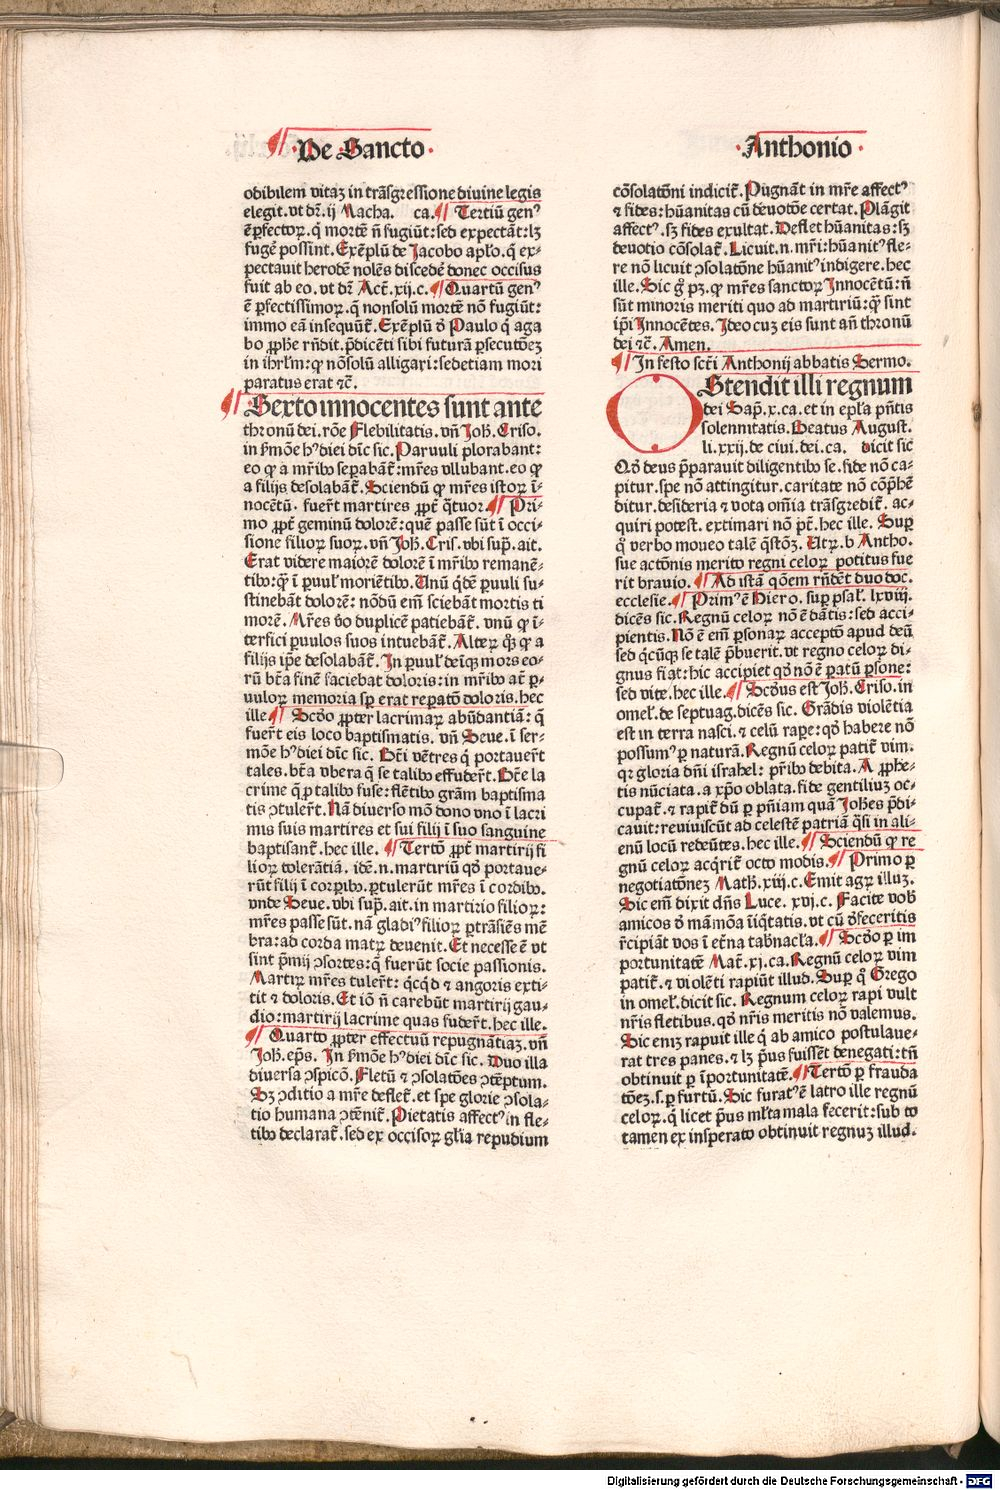 De Sancto
odibilem vitaʒ in trãsgressione divine legis
elegit. vt dr̃. ij Macha. ca. Tertiũ genꝰ
ẽ ꝑfectoꝝ. q̃ mortẽ ñ fugiũt: sed expectãt: lʒ
fugẽ possint. Exẽplũ de Jacobo apło. q̃ ex-
pectauit herodẽ nolẽs discedẽ donec occisus
fuit ab eo. vt dr̃ Act̃. xij. c. Quartũ genꝰ
ẽ ꝑfectissimoꝝ. q̃ nonsolũ mortẽ nõ fugiũt:
immo eã insequũt̃. Exẽplũ ð Paulo q̃ aga
bo ꝓph̃e rñdit. p̃dicẽti sibi futurã ꝑsecutõeʒ
in ihrłm: ꝙ nõsolũ alligari: sedetiam mori
paratus erat ⁊c̃.
Sexto innocentes sunt ante
thronũ dei. rõe Flebilitatis. vñ Joh̃. Criso.
in s̃mõe hꝰ diei dĩc sic. Paruuli plorabant:
eo ꝙ a mr̃ibꝰ sepabãt̃: mr̃es vllubant. eo ꝙ
a filijs desolabãt̃. Sciendũ ꝙ mr̃es istoꝝ ĩ-
nocẽtũ. fuer̃t martires ꝓpt̃ q̃tuor. Pri-
mo ꝓpt̃ geminũ dolorẽ: quẽ passe sũt ĩ occi-
sione filioꝝ suoꝝ. vñ Joh̃. Cris. vbi sup̃. ait.
Erat videre maiorẽ dolorẽ ĩ mr̃ibꝰ remanẽ-
tibꝰ: q̃ ĩ ꝑuuł moriẽtibꝰ. Vnũ q̃dẽ ꝑuuli su-
stinebãt dolorẽ: nõdũ em̃ sciebãt mortis ti
morẽ. Mr̃es ṽo duplicẽ patiebãt̃. vnũ ꝙ ĩ-
terfici ꝑuulos suos intuebãt̃. Alteꝝ q̃ʒ ꝙ a
filijs ip̃e desolabãt̃. In ꝑuuł deĩqʒ mors eo-
rũ bt̃a finẽ faciebat doloris: in mr̃ibꝰ at̃ ꝑ-
vuloꝝ memoria sp̃ erat repatõ doloris. hec
ille. Scðo ꝓpter lacrimaꝝ abũdantiã: q̃
fuer̃t eis loco baptismatis. vñ Seue. ĩ ser-
mõe hꝰ diei dĩc sic. Bt̃i vẽtres q̃ portauer̃t
tales. bt̃a vbera q̃ se talibꝰ effuder̃t. Bt̃e la
crime q̃ ꝓ talibꝰ fuse: flẽtibꝰ grãm baptisma
tis ↄtuler̃t. Nã diuerso mõ dono vno ĩ lacri
mis suis martires et sui filij ĩ suo sanguine
baptisant̃. hec ille. Tertõ ꝓpt̃ martirij fi
lioꝝ tolerãtiã. idẽ. n. martiriũ qð portaue-
rũt filij ĩ corꝑibꝰ. ꝑtulerũt mr̃es ĩ cordibꝰ.
vnde Seue. vbi sup̃. ait. in martirio filioꝝ:
mr̃es passe sũt. nã gladiꝰ filioꝝ ꝑtrãsiẽs mẽ
bra: ad corda matꝝ deuenit. Et necesse ẽ vt
sint p̃mij ↄsortes: q̃ fuerũt socie passionis.
Martiꝝ mr̃es tuler̃t: q̃cq̃d ⁊ angoris exti-
tit ⁊ doloris. Et iõ ñ carebũt martirij gau-
dio: martirij lacrime quas fuder̃t. hec ille.
Quarto ꝓpter effectuũ repugnãtiaʒ. vñ
Joh̃. ep̃s. In s̃mõe hꝰ diei dĩc sic. Duo illa
diuersa ↄspicõ. Fletũ ⁊ ↄsolatões ↄtẽptum.
Sʒ ↄditio a mr̃e deflet̃. et spe glorie ↄsola-
tio humana ↄtẽnit̃. Pietatis affectꝰ in fle-
tibꝰ declarat̃. sed ex occisoꝝ gl̃ia repudium
Anthonio
cõsolatõni indicit̃. Pugnãt in mr̃e affectꝰ
⁊ fides: hũanitas cũ deuotõe certat. Plãgit
affectꝰ. sʒ fides exultat. Deflet hũanitas: sʒ
deuotio cõsolat̃. Licuit. n. mr̃i: hũanitꝰ fle-
re nõ licuit ↄsolatõne hũanitꝰ indigere. hec
ille. Sic g̃ pʒ. ꝙ mr̃es sanctoꝝ Innocẽtũ: ñ
sũt minoris meriti quo ad martiriũ: q̃ʒ sint
ip̃i Innocẽtes. Ideo cuʒ eis sunt añ thronũ
dei ⁊c̃. Amen.
In festo sct̃i Anthonij abbatis Sermo.
OStendit illi regnum
dei Sap̃. x. ca. et in epl̃a pñtis
solennitatis. Beatus August.
li. xxij. de ciui. dei. ca. dicit sic
Qð deus p̃parauit diligentibꝰ se. fide nõ ca-
pitur. spe nõ attingitur. caritate nõ cõp̃hẽ
ditur. desideria ⁊ vota om̃ia trãsgredit̃. ac-
quiri potest. extimari nõ pt̃. hec ille. Suꝑ
q̃ verbo moueo talẽ q̃stõʒ. Utꝝ. b Antho.
sue actõnis merito regni celoꝝ potitus fue
rit brauio. Ad istã q̃õem rñdẽt duo doc.
ecclesie. Primꝰ ẽ Hiero. suꝑ psał. lxviij.
dicẽs sic. Regnũ celoꝝ nõ ẽ dãtis: sed acci-
pientis. Nõ ẽ em̃ ꝑsonaꝝ acceptõ apud deũ
sed q̃cũqʒ se talẽ p̃buerit. vt regno celoꝝ di-
gnus fiat: hic accipiet qð nõ ẽ ꝑatũ ꝑsone:
sed vite. hec ille. Scðus est Joh̃. Criso. in
omeł. de septuag. dicẽs sic. Grãdis violẽtia
est in terra nasci. ⁊ celũ rape: qð habere nõ
possumꝰ ꝑ naturã. Regnũ celoꝝ patit̃ vim.
qꝛ gloria dñi israhel: pr̃ibꝰ debita. A ꝓphe-
tis nũciata. a xp̃o oblata. fide gentiliuʒ oc-
cupat̃. ⁊ rapit̃ dũ ꝑ pñiam quã Joh̃es p̃di-
cauit: reuiuiscũt ad celestẽ patriã q̃si in ali-
enũ locũ redeũtes. hec ille. Sciendũ ꝙ re
gnũ celoꝝ acq̃rit̃ octo modis. Primo ꝑ
negotiatõneʒ Math̃. xiij. c. Emit agꝝ illuʒ.
Sic em̃ dixit dñs Luce. xvj. c. Facite vob̃
amicos ð mãmõa ĩiq̃tatis. vt cũ ðfeceritis
r̃cipiãt vos ĩ et̃na tab̃nacła. Scðo ꝑ im
portunitatẽ Mat̃. xj. ca. Regnũ celoꝝ vim
patit̃. ⁊ violẽti rapiũt illud. Suꝑ q̃ Grego
in omeł. dicit sic. Regnum celoꝝ rapi vult
nr̃is fletibus. qð nr̃is meritis nõ valemus.
Sic eniʒ rapuit ille q̃ ab amico postulaue-
rat tres panes. ⁊ lʒ p̃us fuissẽt denegati: tñ
obtinuit ꝑ ĩportunitatẽ. Tertõ ꝑ frauda
tõeʒ. s. ꝑ furtũ. Sic furatꝰ ẽ latro ille regnũ
celoꝝ. q̃ licet p̃us ml̃ta mala fecerit: sub to
tamen ex insperato obtinuit regnuʒ illud.
Digitalisierung gefördert durch die Deutsche Forschungsgemeinschaft - DFG